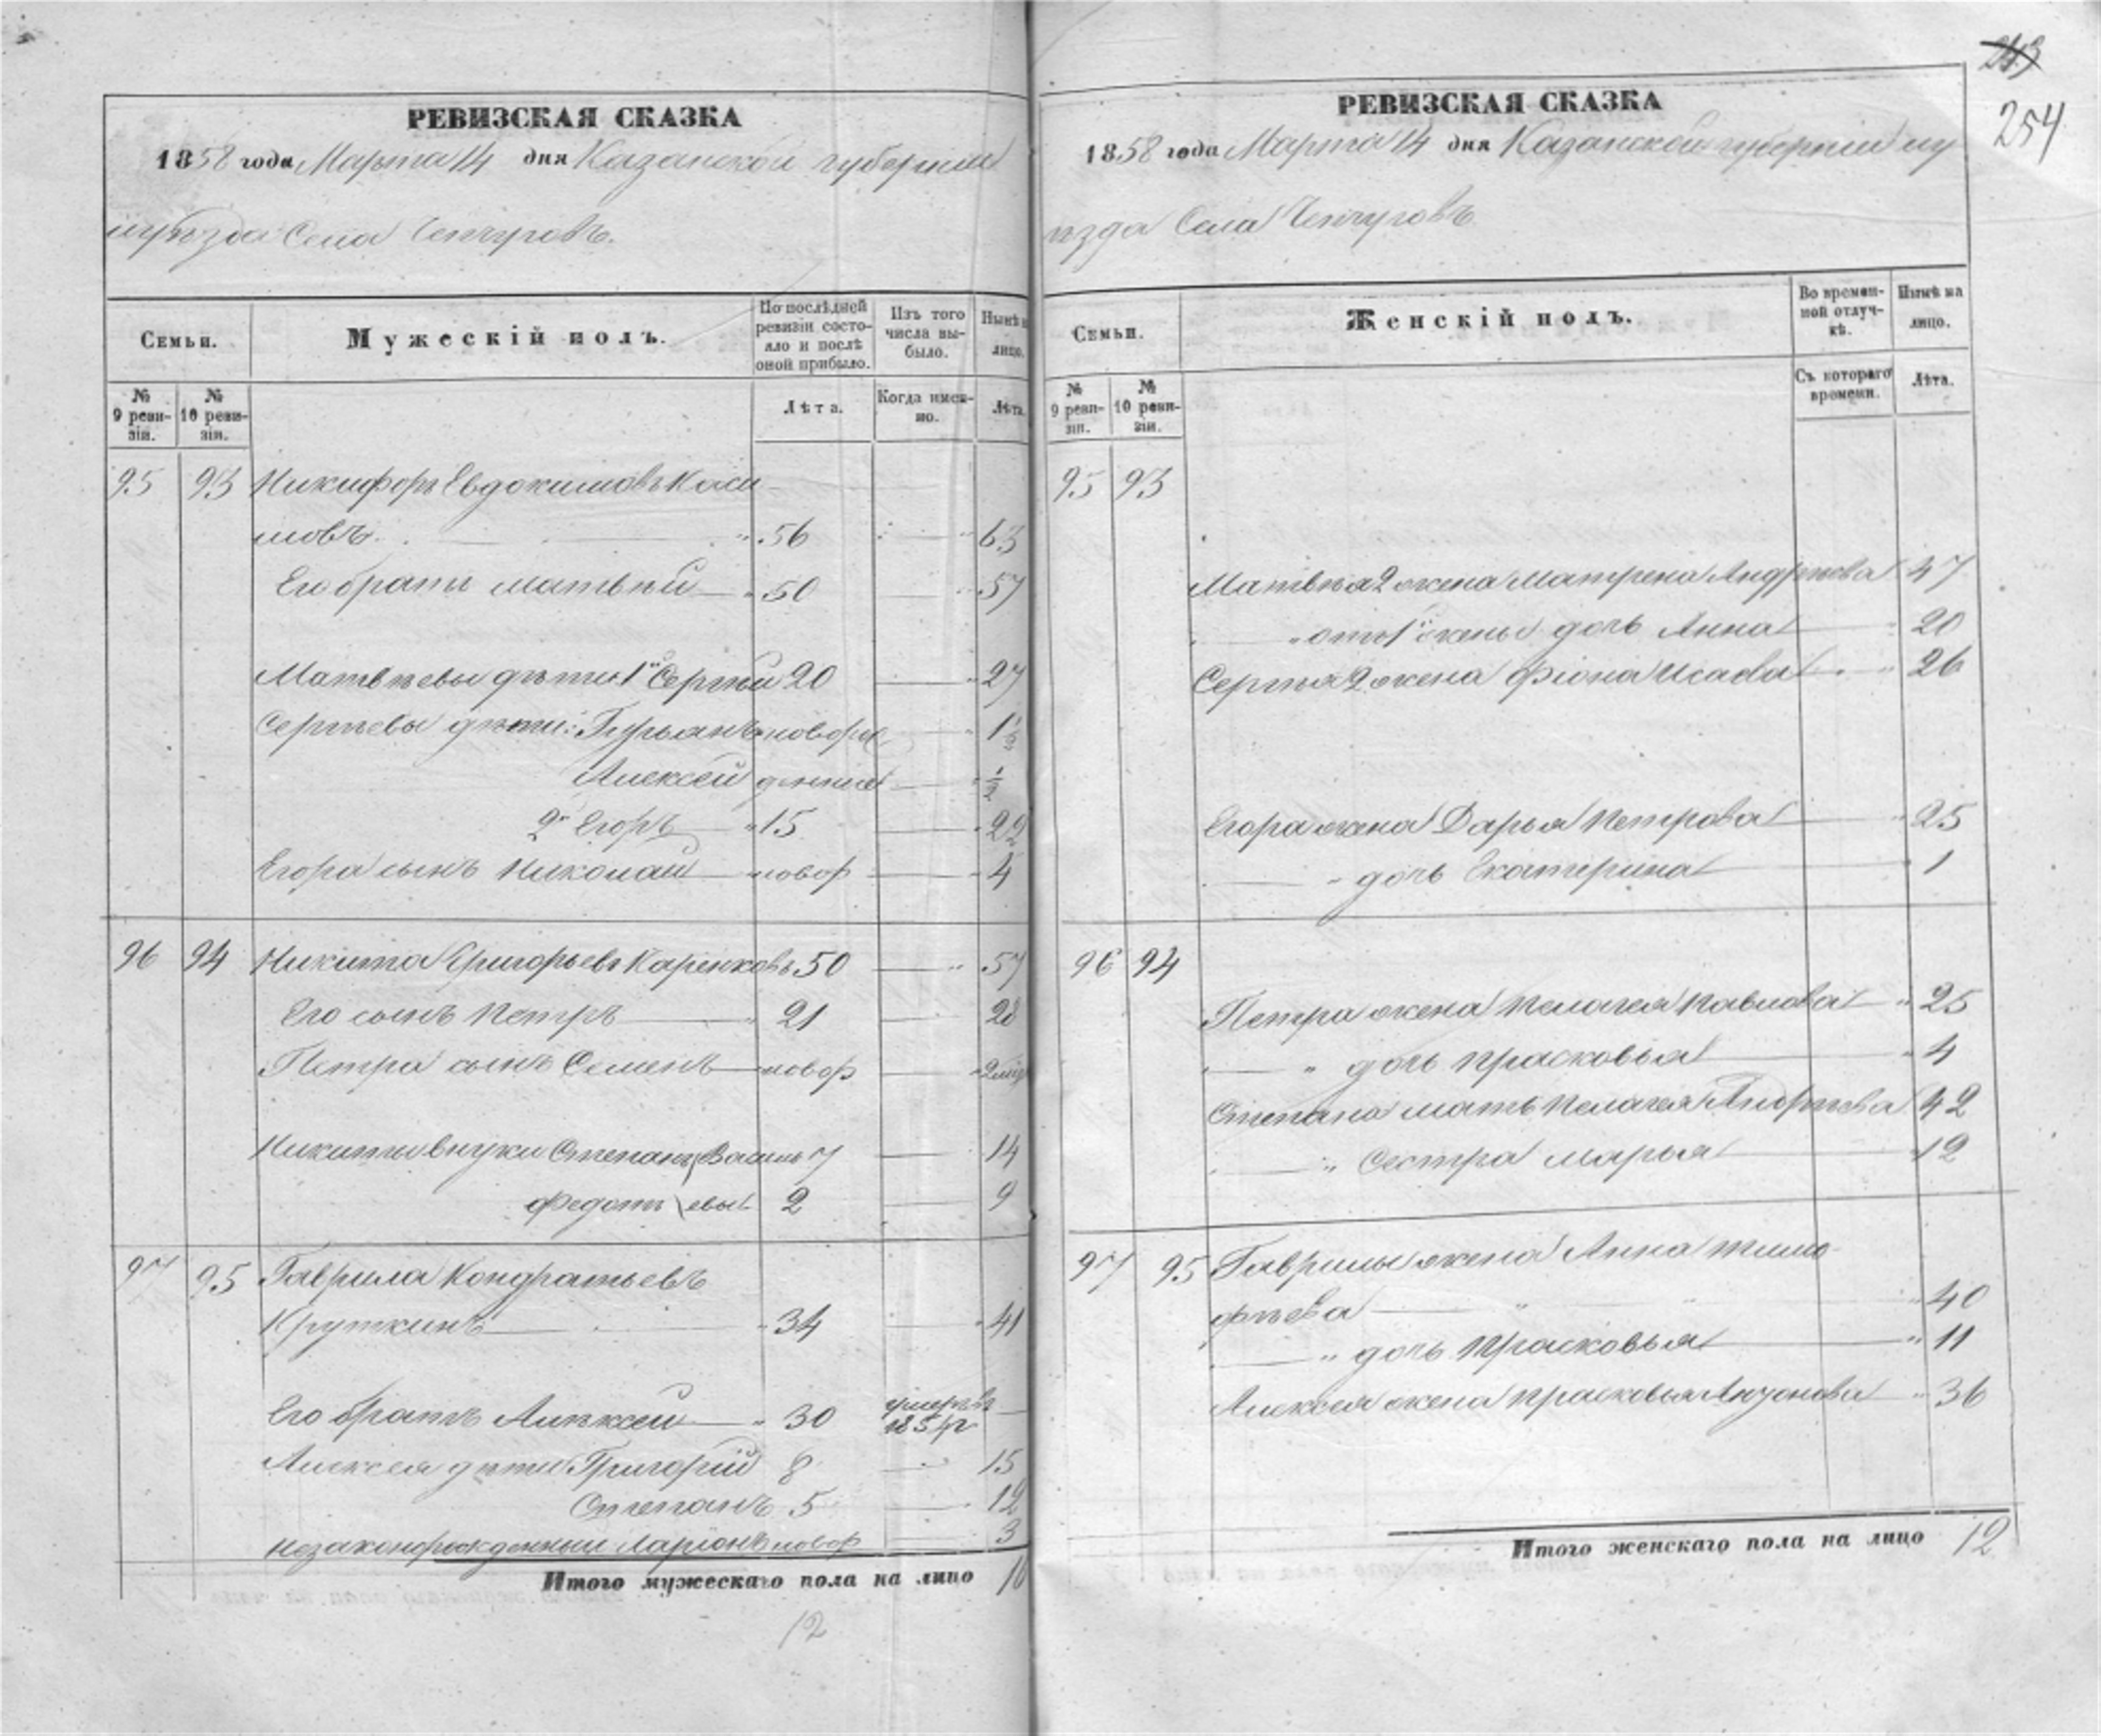 РЕВИЗСКАЯ СКАЗКА
1858 года Марта 14 дня Казанской губернии
и уѣзда Села Чепчуговъ.
Семьи.
Мужескій полъ.
По послѣдней ревизіи состояло и послѣ оной прибыло.
Изъ того числа выбыло.
Нынѣ на лицо.
№ 9 ревизіи.
№ 10 ревизіи.
Лѣта.
Когда именно.
Лѣта.
95 93 Никифоръ Евдокимовъ Каси
мовъ. 56 63
Его братъ Матвѣй 50 57
Матвѣевы дѣти 1й Сергѣй 20 27
Сергѣевы дѣти: Гурьянъ новоро 1½
Алексѣй жденные ½
2й Егоръ 15 22
Егора сынъ Николай новор 4
96 94 Никита Григорьевъ Каренковъ 50 57
Его сынъ Петръ 21 28
Петра сынъ Семенъ новор
Никиты внуки Степанъ Василь 7 14
Федотъ евы 2 9
97 95 Гаврила Кондратьевъ
Круткинъ 34 41
Его братъ Алексѣй 30 умеръ въ 1854 г
Алексѣя дѣти Григорій 8 15
Степанъ 5 12
незаконорожденный Ларіонъ новор 3
Итого мужескаго пола на лицо 16
12
243
254
РЕВИЗСКАЯ СКАЗКА
1858 года Марта 14 дня Казанской губерніи и у
ѣзда Села Чепчуговъ
Семьи.
Женскій полъ.
Во временной отлучкѣ.
Нынѣ на лицо.
№ 9 ревизіи.
№ 10 ревизіи.
Съ котораго времени.
Лѣта.
95 93
Матвѣя 2 жена Матрена Андрѣева 47
отъ 1й жены дочь Анна 20
Сергѣя 2 жена Фіона Исаева 26
Егора жена Дарья Петрова 25
дочь Екатерина 1
96 94
Петра жена Пелагея Павлова 25
дочь Прасковья 4
Степана мать Пелагея Андрѣева 42
Сестра Марья 12
97 95 Гаврилы жена Анна Тимо-
фѣева 40
дочь Прасковья 11
Алексѣя жена Прасковья 36
Итого женскаго пола на лицо 12